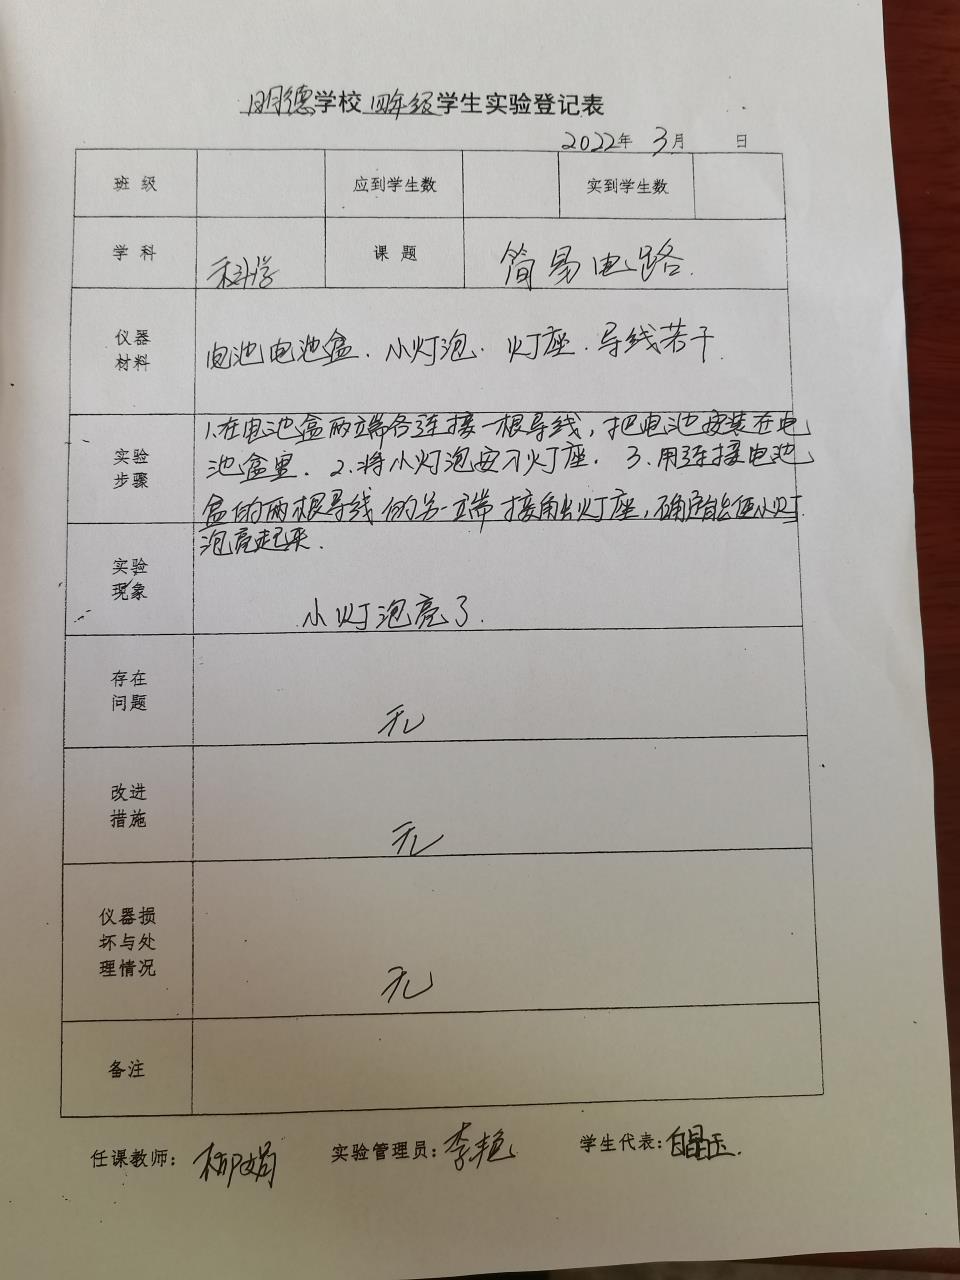 明德学校四年级学生实验登记表
2022年 3月 日
班 级 应到学生数 实到学生数
学 科 科学 课 题 简易电路.
仪器
材料
电池电池盒.小灯泡.灯座.导线若干
实验
步骤
1.在电池盒的两端各连接一根导线,把电池安装在电
池盒里. 2.将小灯泡安入灯座. 3.用连接电池
盒的两根导线的另一端接触灯座,确定能使小灯
泡亮起来.
实验
现象
小灯泡亮了.
存在
问题
无
改进
措施
无
仪器损
坏与处
理情况
无
备注
任课教师: 柳娟 实验管理员: 李艳 学生代表: